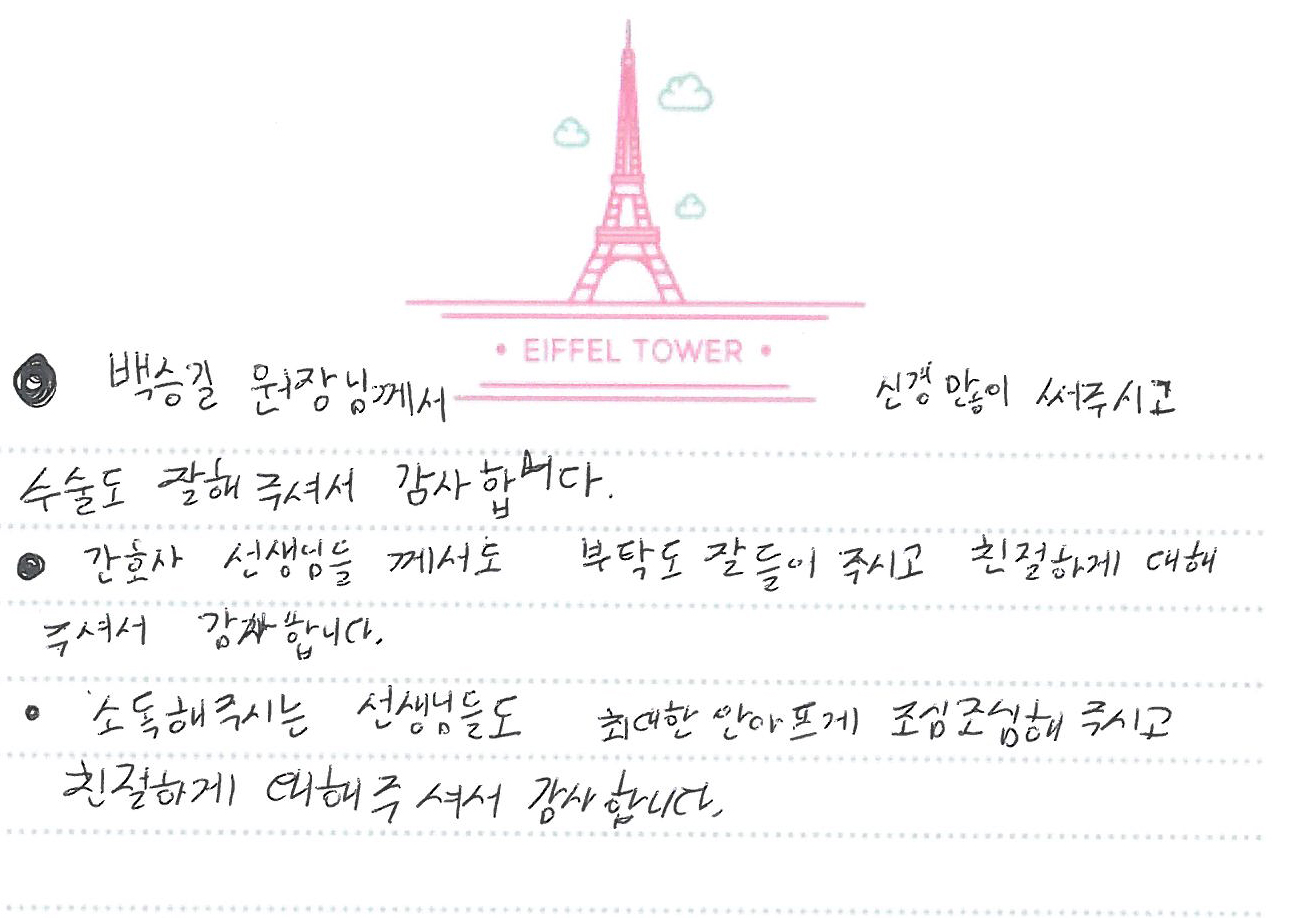 • EIFFEL TOWER •
● 백승길 원장님께서 신경 많이 써주시고
수술도 잘해주셔서 감사합니다.
● 간호사 선생님들 께서도 부탁도 잘들어 주시고 친절하게 대해
주셔서 감사합니다.
• 소독해주시는 선생님들도 최대한 안아프게 조심조심해주시고
친절하게 대해주셔서 감사합니다.